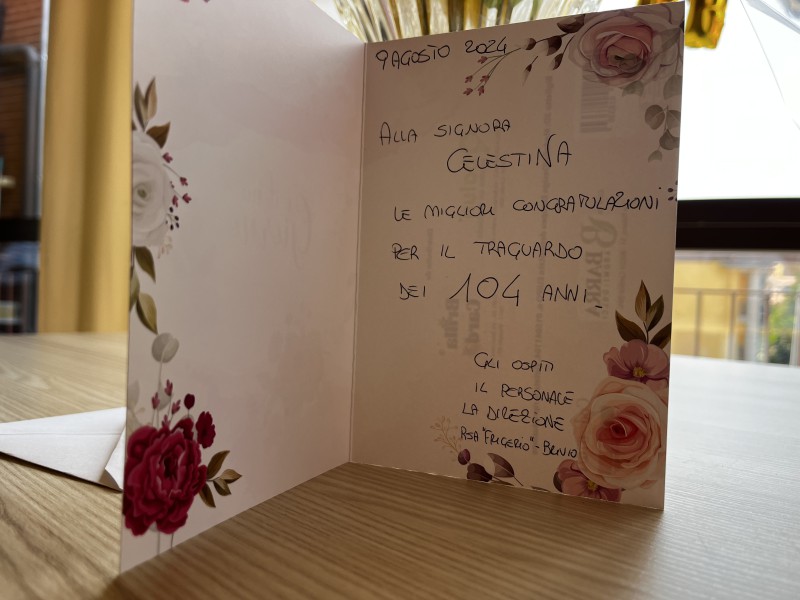 9 AGOSTO 2024
ALLA SIGNORA
CELESTINA
LE MIGLIORI CONGRATULAZIONI
PER IL TRAGUARDO
DEI 104 ANNI.
GLI OSPITI
IL PERSONALE
LA DIREZIONE
RSA "FRIGERIO" - BRIVIO